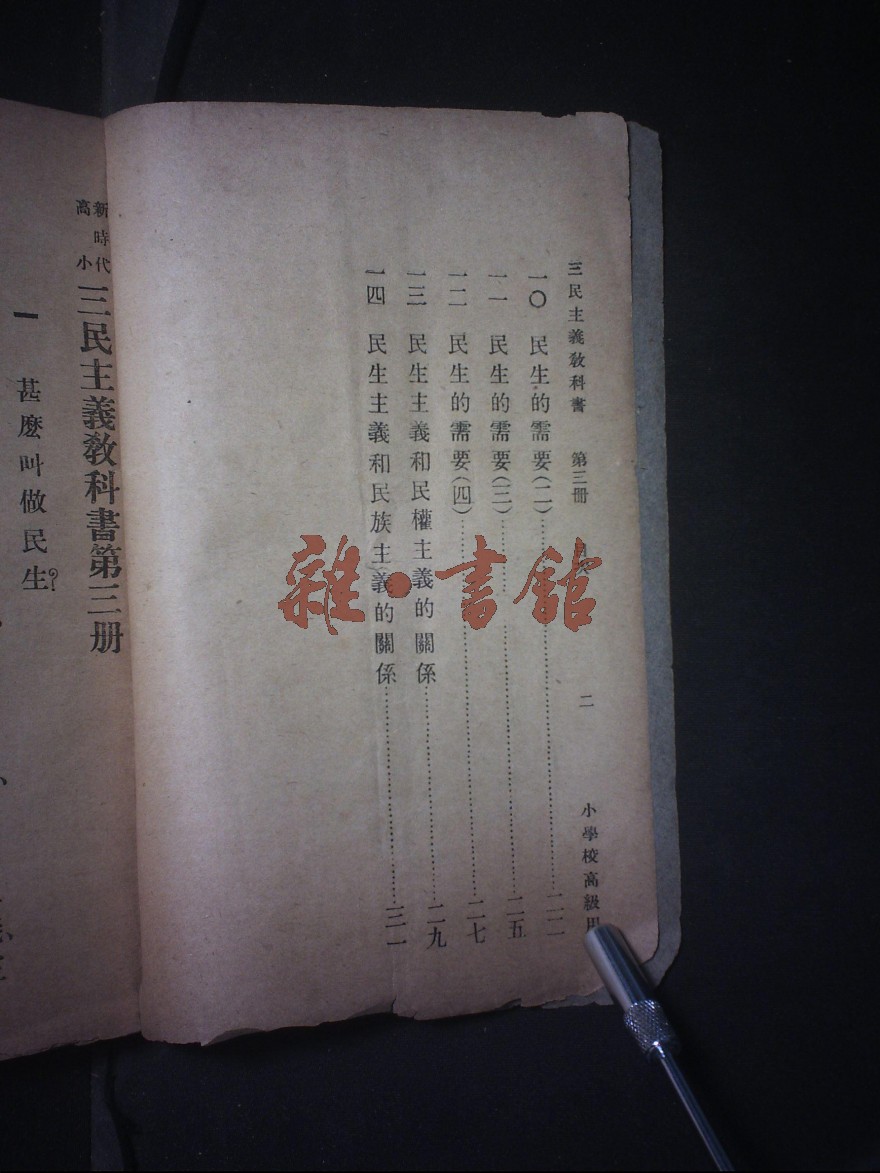 三民主義教科書 第三冊 目 二 小學校高級用
一〇 民生的需要(二)……二二
一一 民生的需要(三)……二五
一二 民生的需要(四)……二七
一三 民生主義和民權主義的關係……二九
一四 民生主義和民族主義的關係……三一
新時代高小 三民主義教科書第三册
一 甚麼叫做民生?
雜·書館